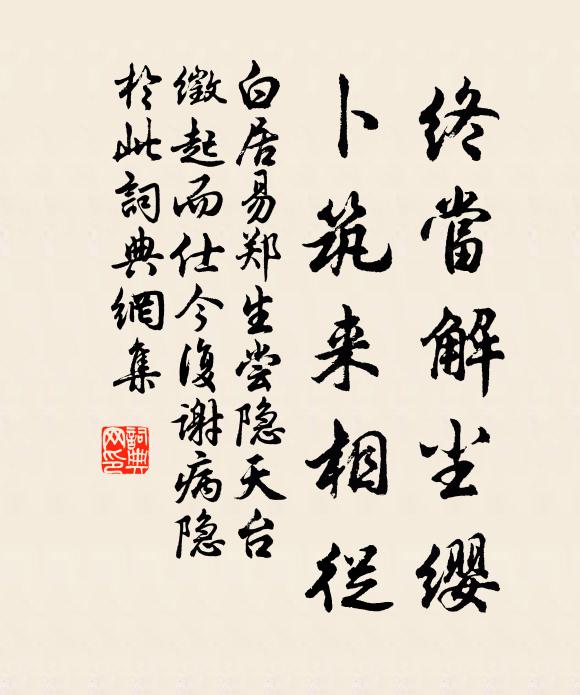 終當解尘纓
卜筑来相從
白居易郑生尝隐天台
徵起而仕今復谢病隐
於此詞典網集
詞典
网印